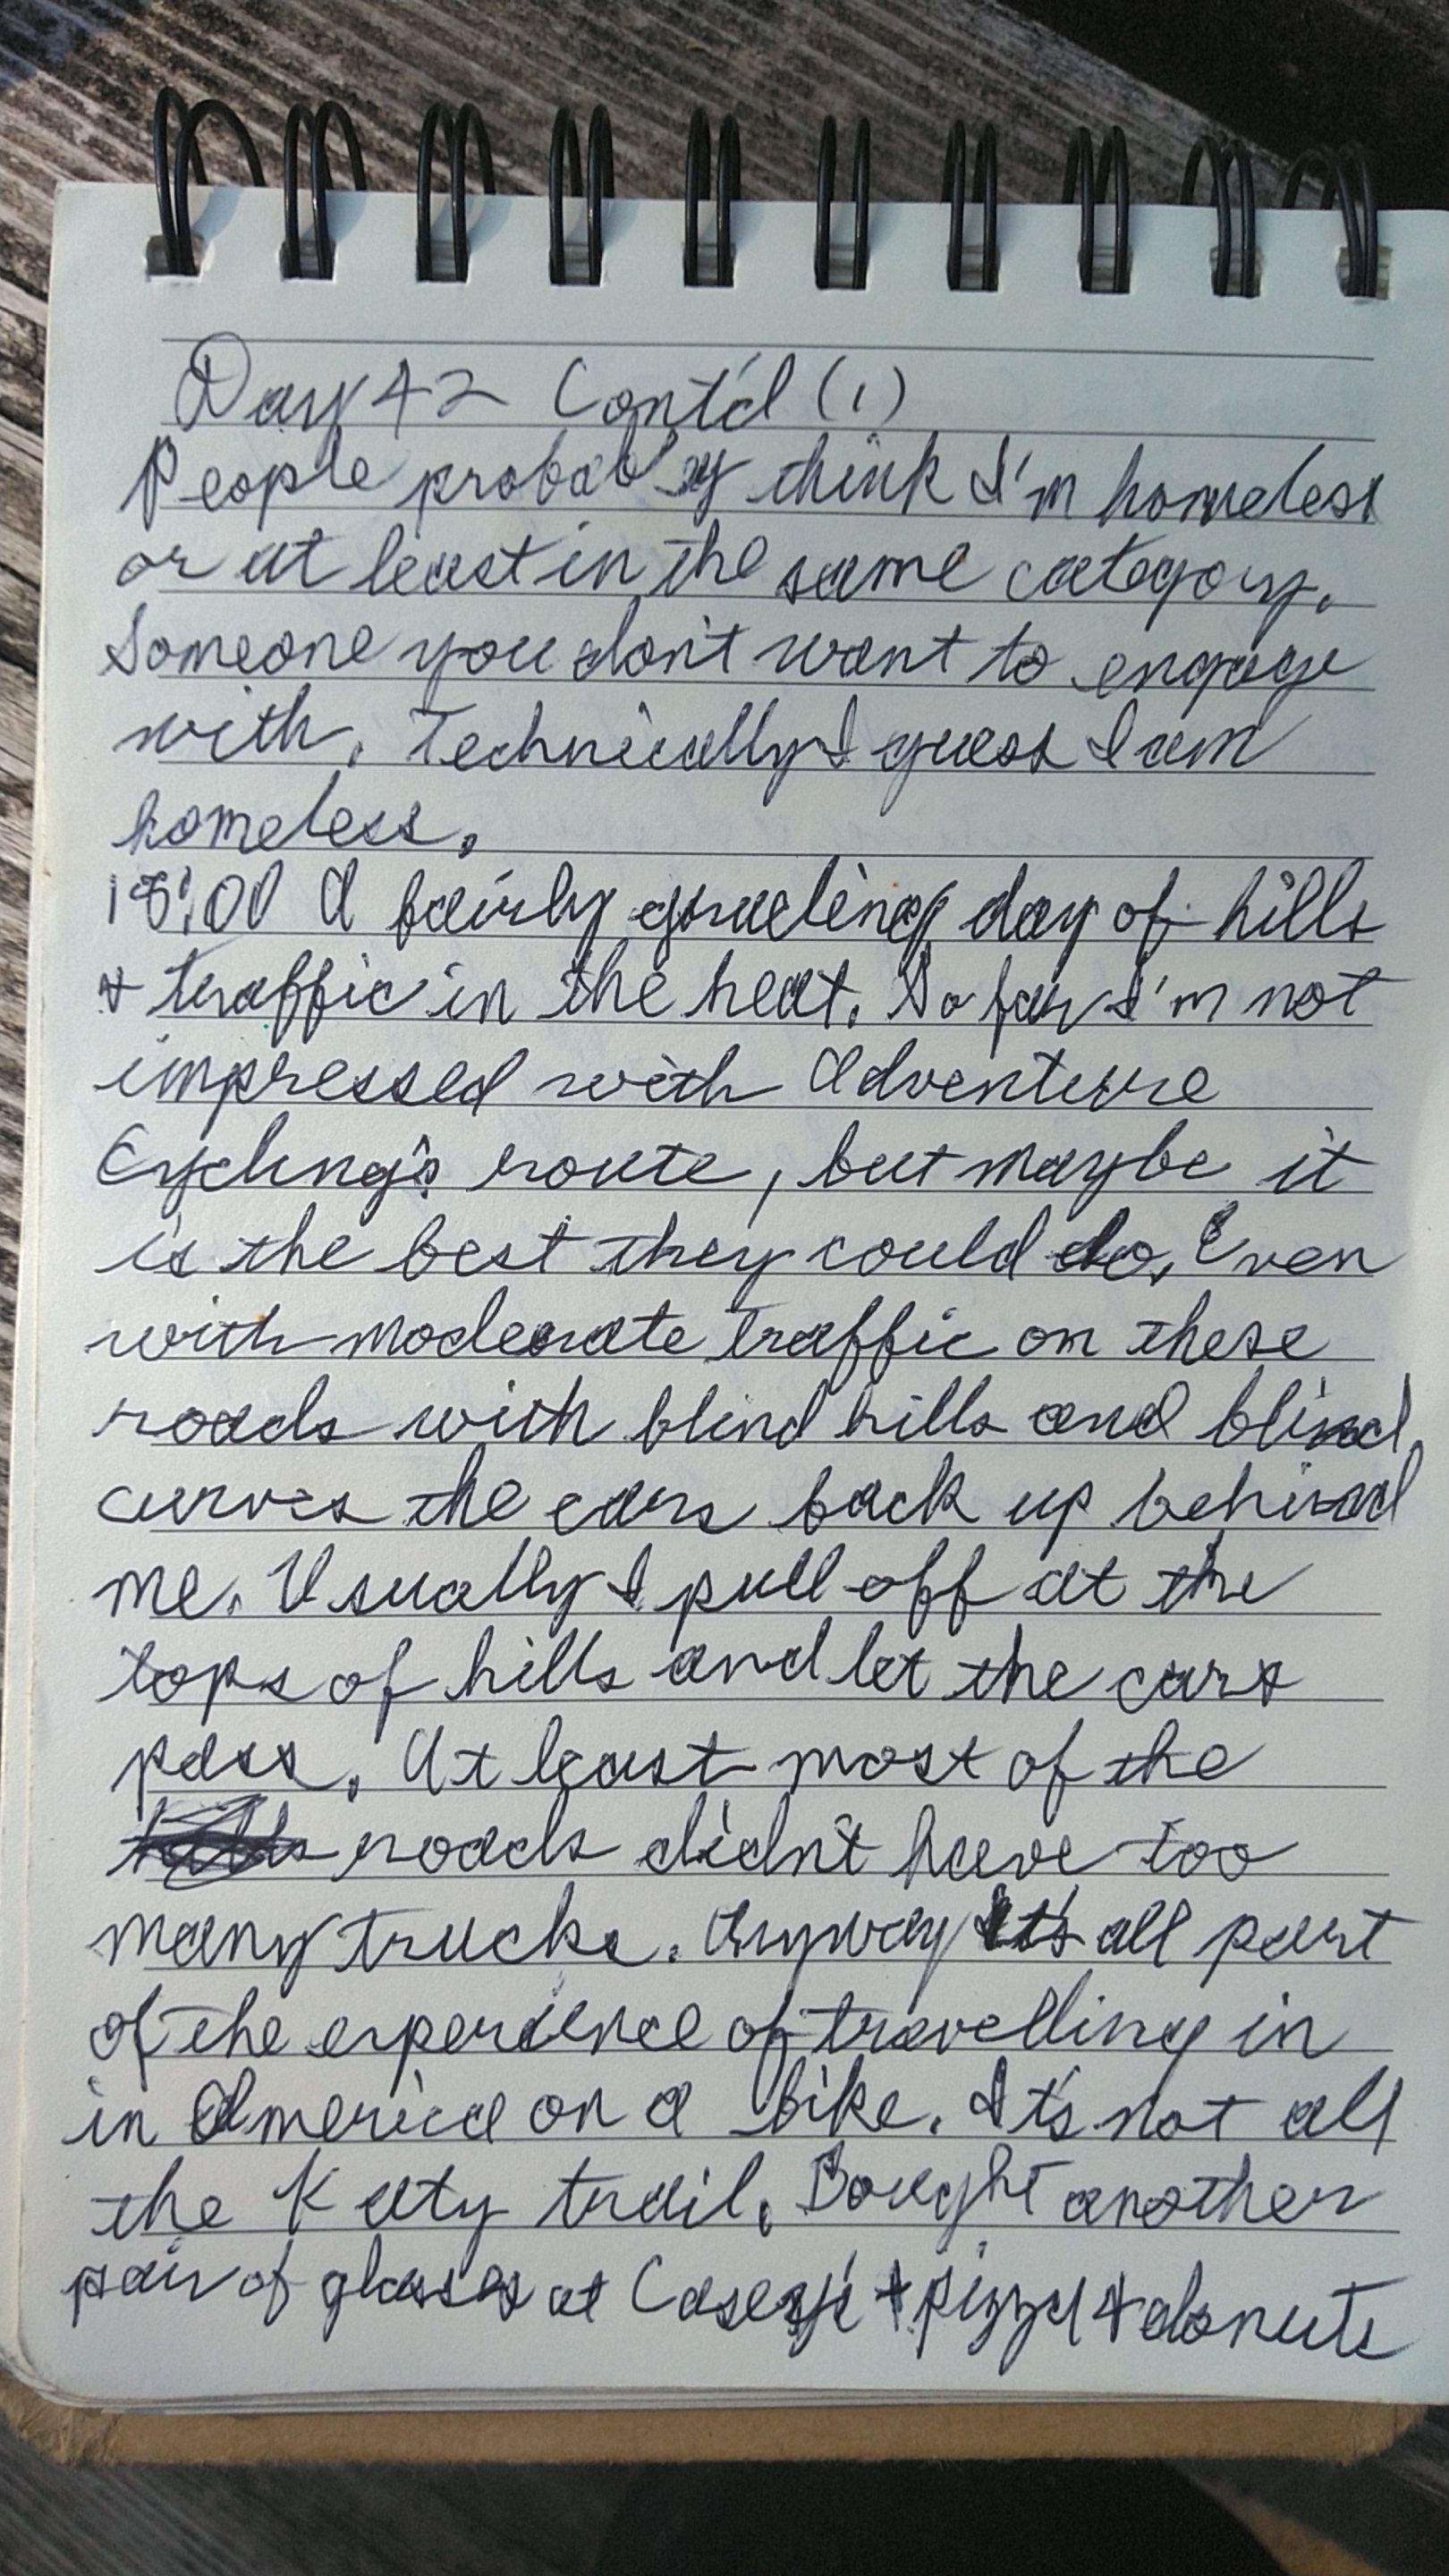 Day 42 Cont'd (1)
People probably think I'm homeless
or at least in the same category.
Someone you don't want to engage
with. Technically I guess I am
homeless.
18:00 A fairly grueling day of hills
+ traffic in the heat. So far I'm not
impressed with Adventure
Cycling's route, but maybe it
is the best they could do. Even
with moderate traffic on these
roads with blind hills and blind
curves the cars back up behind
me. Usually I pull off at the
tops of hills and let the cars
pass. At least most of the
roads didn't have too
many trucks. Anyway it's all part
of the experience of travelling in
in America on a bike. It's not all
the Katy trail. Bought another
pair of glasses at Casey's + pizza + donuts